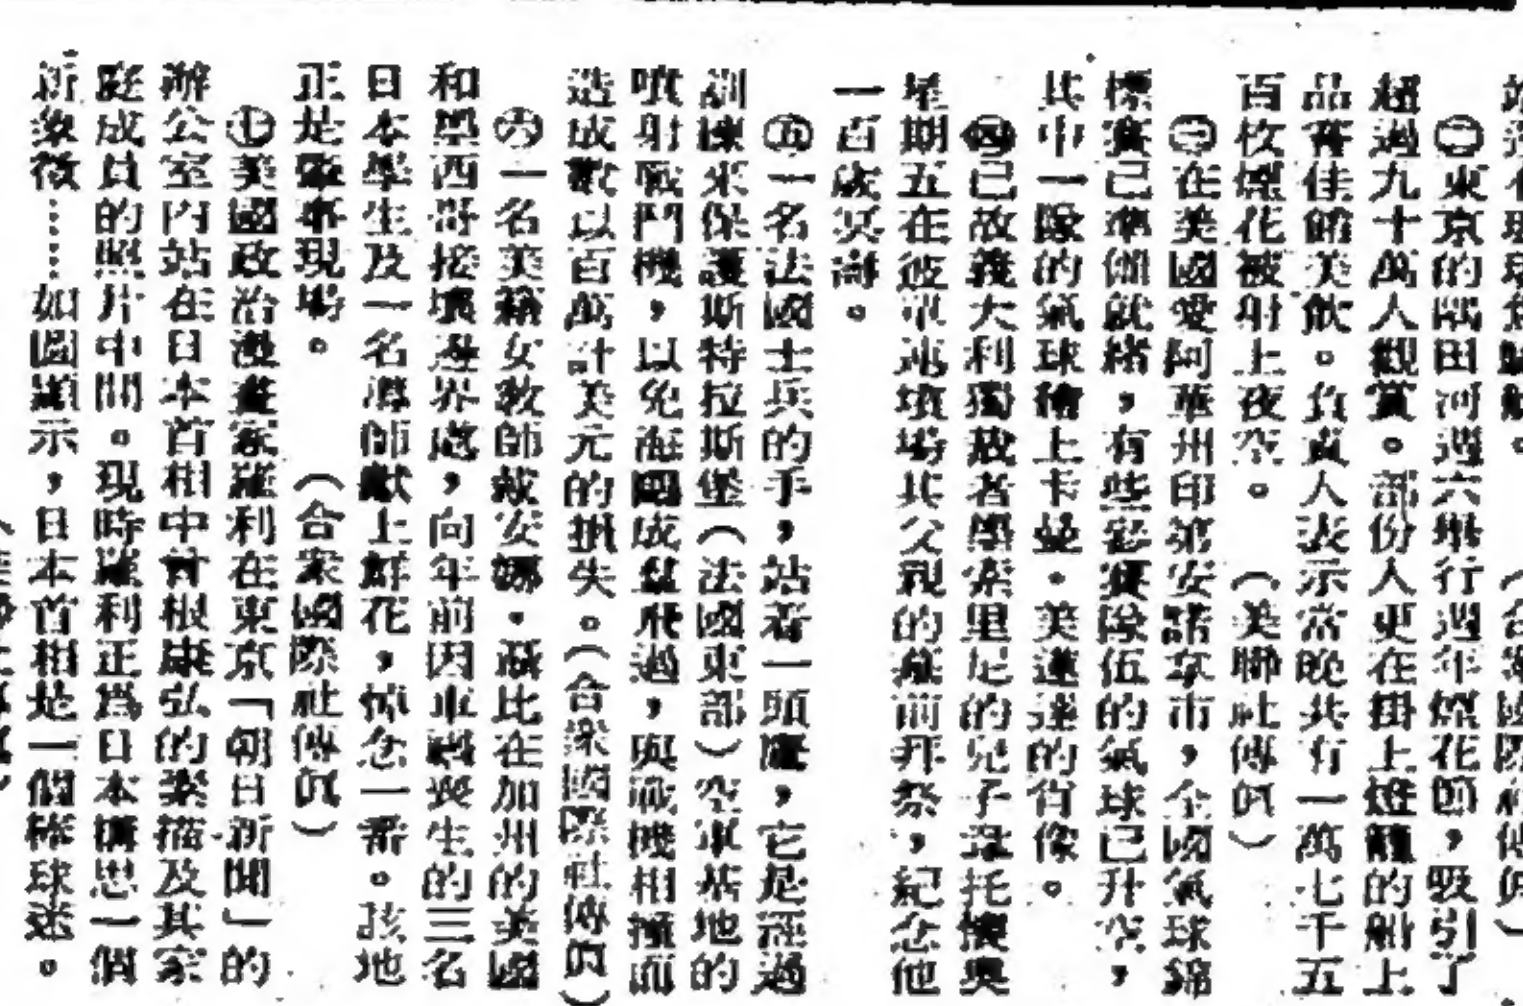 ㊁東京的隅田河週六舉行週年煙花節，吸引了
超過九十萬人觀賞。部份人更在掛上燈籠的船上
品嘗佳餚美飲。負責人表示當晚共有一萬七千五
百枚煙花被射上夜空。（美聯社傳眞）
㊂在美國愛阿華州印第安諾拿市，全國氣球錦
標賽已準備就緒，有些參賽隊伍的氣球已升空，
其中一隊的氣球繪上卡曼・美蓮達的肖像。
㊃已故義大利獨裁者墨索里尼的兒子羅托懷奧
星期五在彼里連墳場其父親的墓前拜祭，紀念他
一百歲冥壽。
㊄一名法國士兵的手，站着一頭鷹，它是經過
訓練來保護斯特拉斯堡（法國東部）空軍基地的
噴射戰鬥機，以免海鷗成羣飛過，與戰機相撞而
造成數以百萬計美元的損失。（合衆國際社傳眞）
㊅一名美籍女敎師戴安娜・蘇比在加州的美國
和墨西哥接壤邊界處，向年前因車禍喪生的三名
日本學生及一名導師獻上鮮花，悼念一番。該地
正是肇事現場。（合衆國際社傳眞）
㊆美國政治漫畫家羅利在東京「朝日新聞」的
辦公室內站在日本首相中曾根康弘的素描及其家
庭成員的照片中間。現時羅利正爲日本構思一個
新象徵……如圖顯示，日本首相是一個棒球迷。